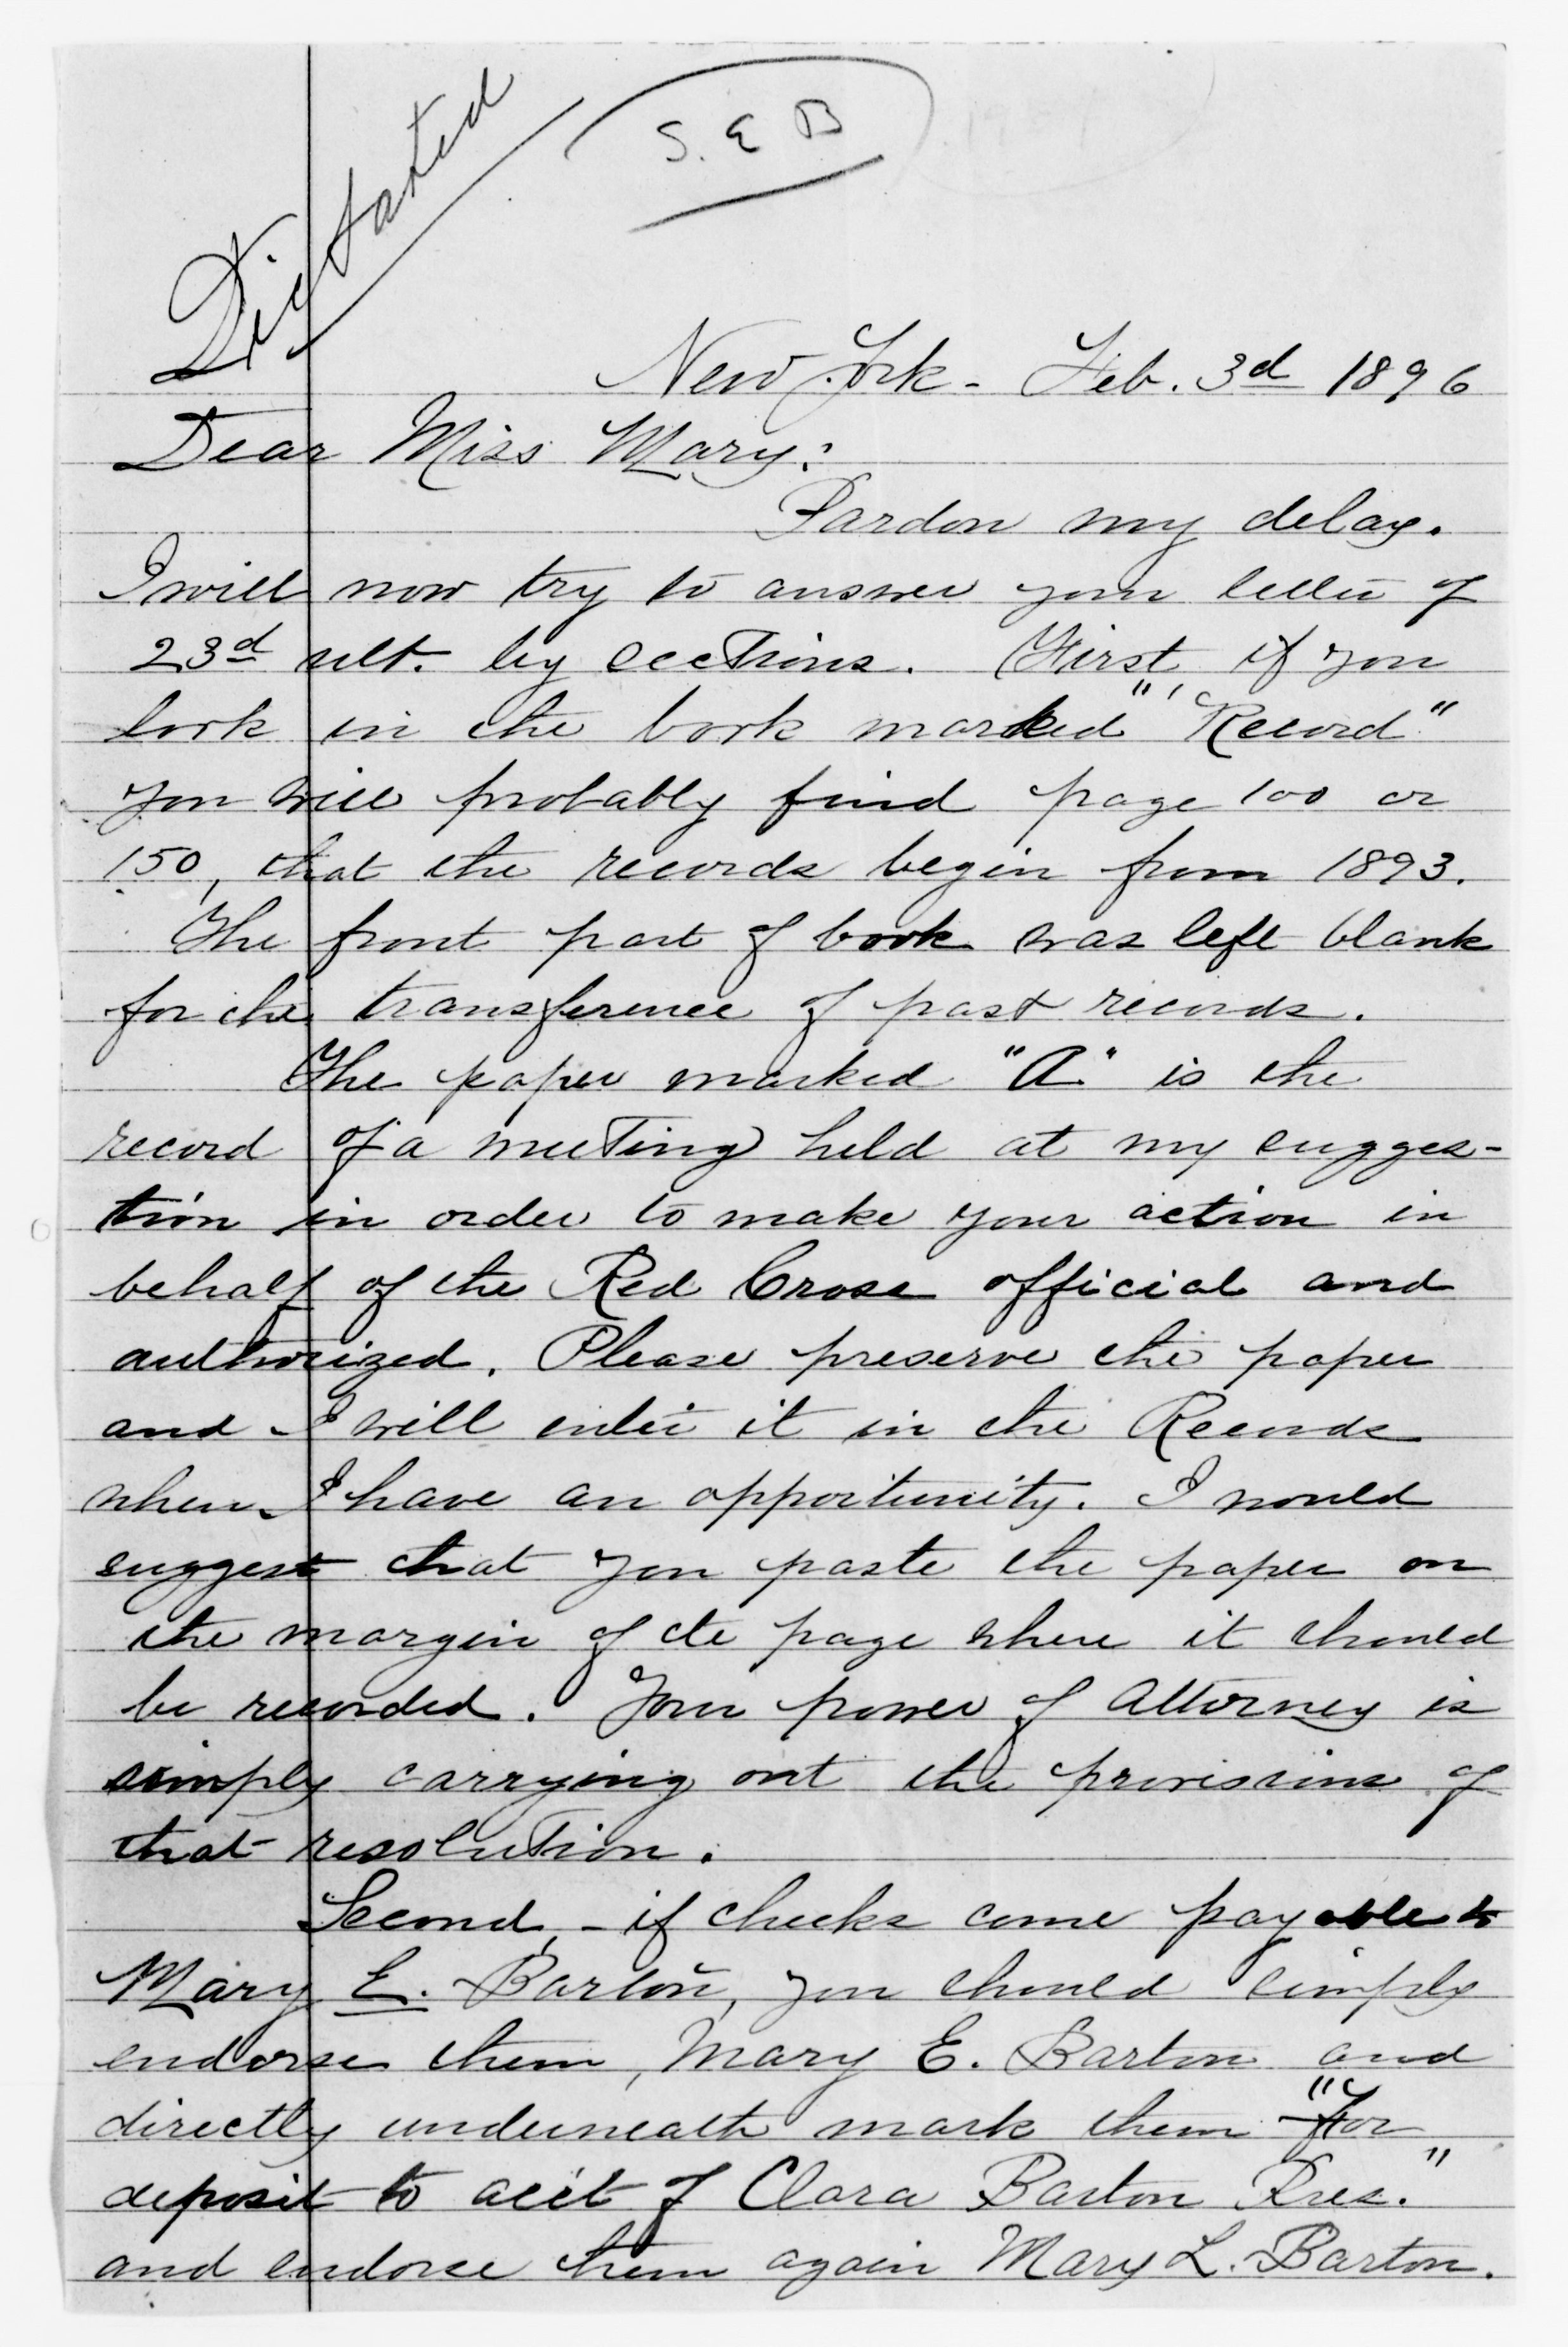 Dictated
S. E B
New York - Feb. 3d 1896
Dear Miss Mary:
Pardon my delay.
I will now try to answer your letter of
23d ult. by sections. First, if you
look in the book marked "Record"
you will probably find page 100 or
150, that the records begin from 1893.
The front part of book was left blank
for the transference of past records.
The paper marked "A" is the
record of a meeting held at my sugges-
tion in order to make your action in
behalf of the Red Cross official and
authorized. Please preserve the paper
and I will enter it in the Records
when I have an opportunity. I would
suggest that you paste the paper on
the margin of the page where it should
be recorded. Your power of Attorney is
simply carrying out the provisions of
that resolution.
Second, - if checks come payable to
Mary E. Barton, you should simply
endorse them, Mary E. Barton and
directly underneath mark them "For
deposit to acc't of Clara Barton Pres."
and endorse them again Mary L. Barton.